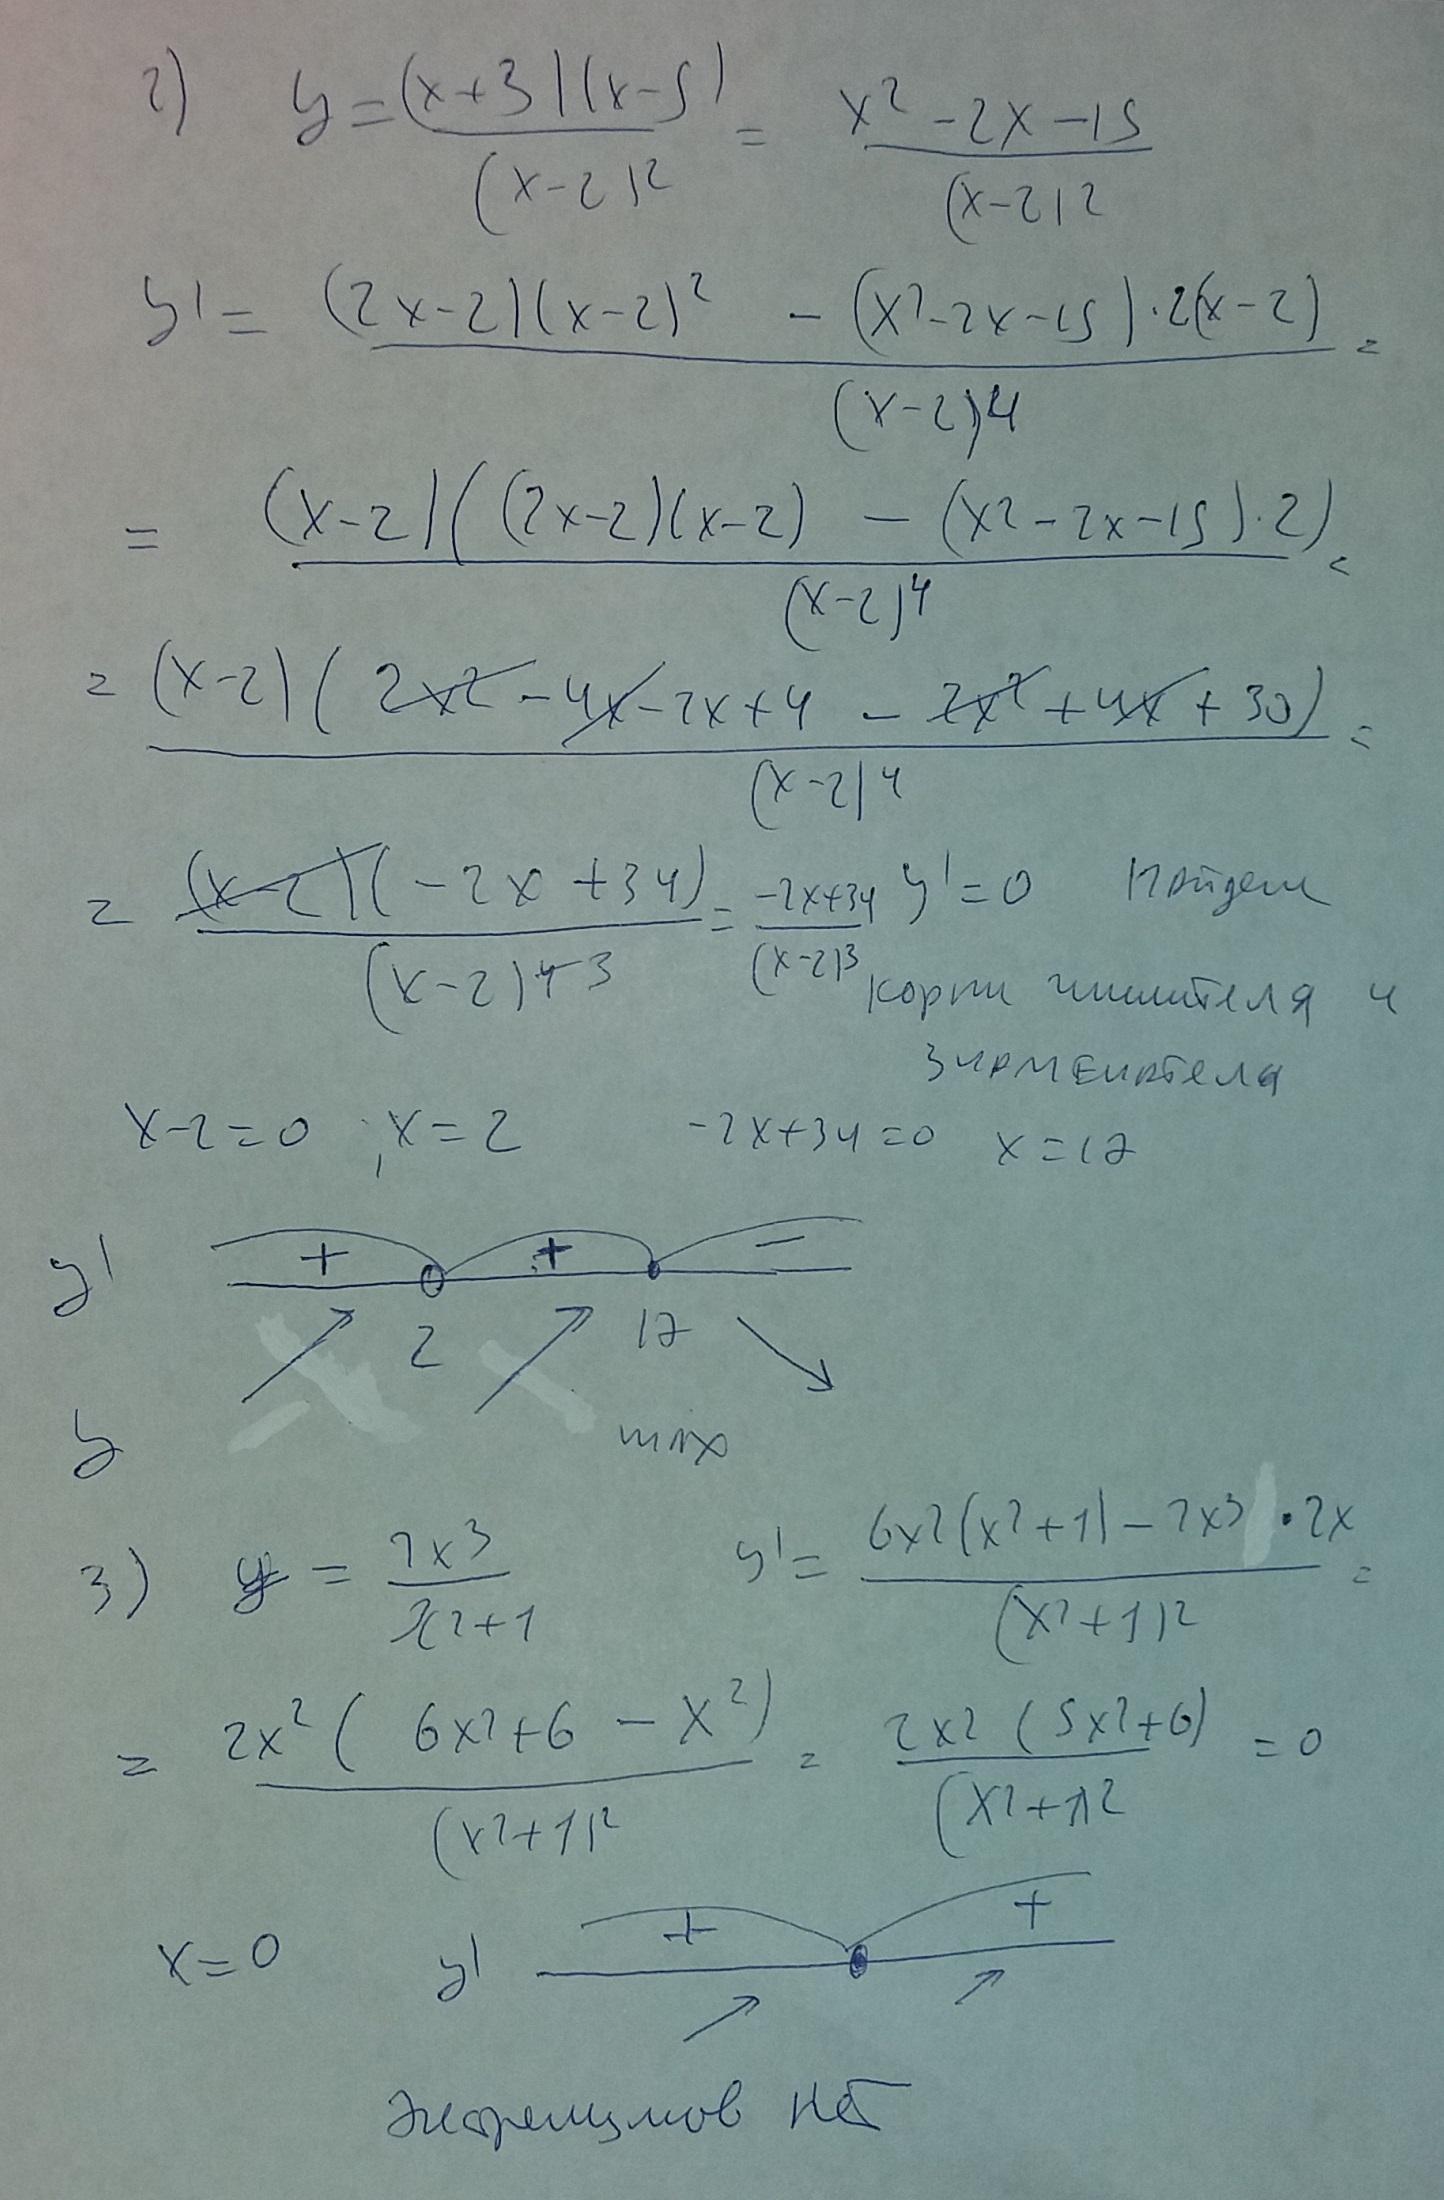 2) y = (x+3)(x-5) / (x-2)² = x² -2x -15 / (x-2)²
y' = (2x-2)(x-2)² - (x²-2x-15)·2(x-2) / (x-2)4 =
= (x-2)((2x-2)(x-2) - (x²-2x-15)·2) / (x-2)⁴ =
= (x-2)(2x²-4x-2x+4 - 2x²+4x+30) / (x-2)4 =
= (x-2)(-2x+34) / (x-2)4 3 = -2x+34 / (x-2)3 y'=0 Найдем
корни числителя и
знаменателя
x-2=0 ; x=2 -2x+34=0 x=17
y' + + -
2 17
y max
3) y = 2x3 / x2+1 y' = 6x2(x2+1) - 2x3 ·2x / (x2+1)2 =
= 2x²(6x2+6 - x²) / (x2+1)2 = 2x2(5x2+6) / (x2+1)2 = 0
x=0 y' + +
Экстремумов нет